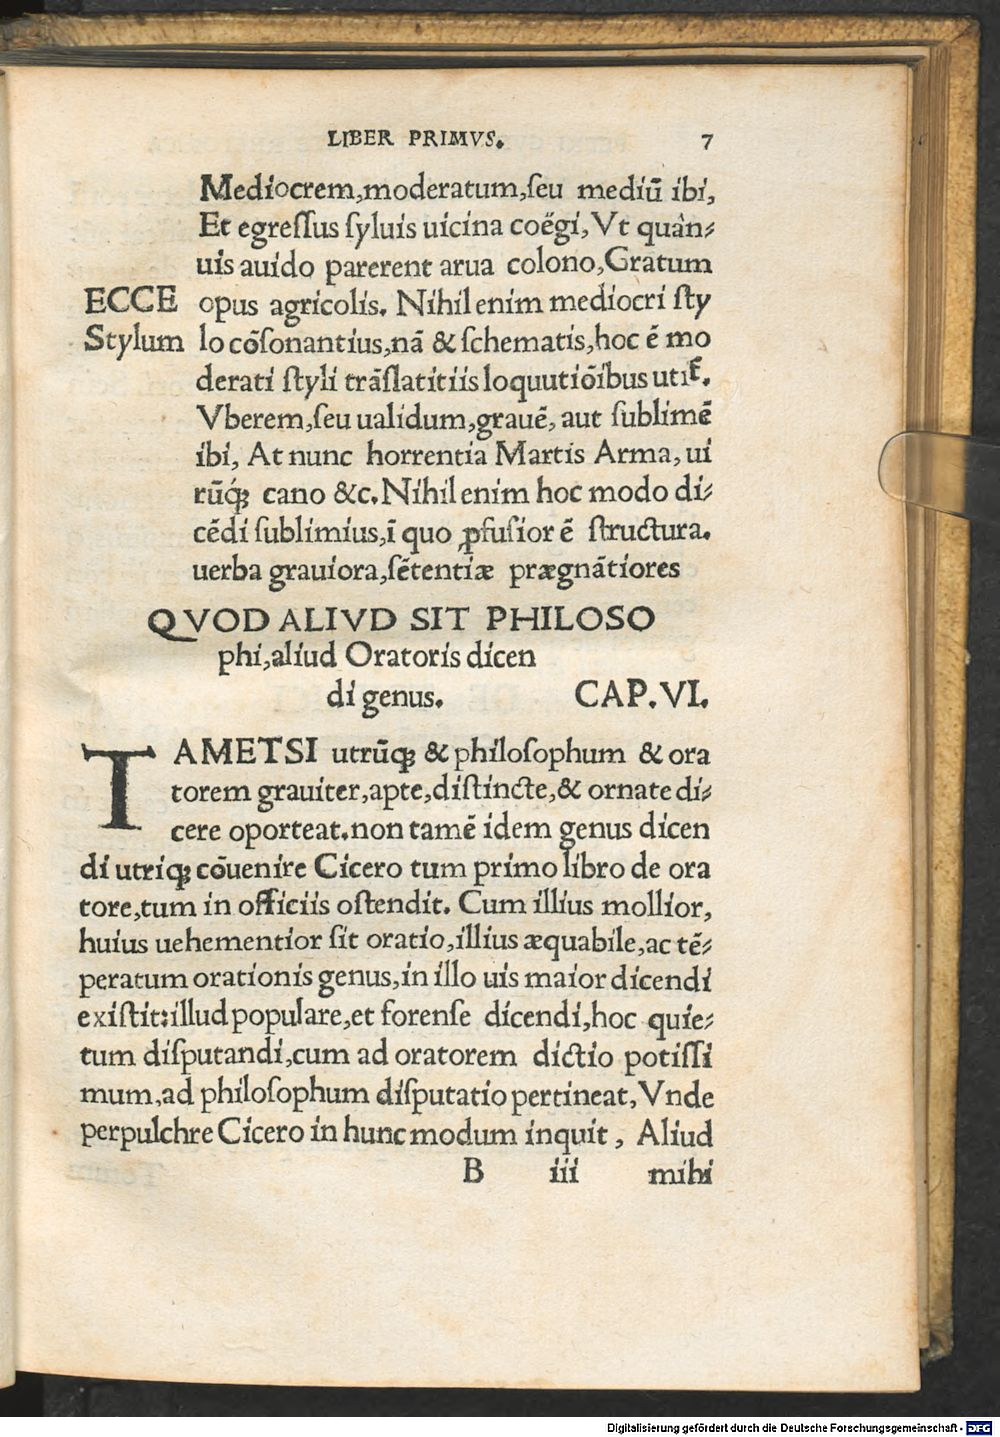 LIBER PRIMVS. 7
Mediocrem,moderatum,ſeu mediū ibi,
Et egreſſus ſyluis uicina coëgi,Vt quàn⸗
uis auido parerent arua colono,Gratum
ECCE opus agricolis. Nihil enim mediocri ſty
Stylum lo cōſonantius,nā & ſchematis,hoc ē mo
derati ſtyli trāſlatitiis loquutiōibus utiť.
Vberem,ſeu ualidum,grauē, aut ſublimē
ibi, At nunc horrentia Martis Arma, ui
rūq́; cano &c.Nihil enim hoc modo di⸗
cēdi ſublimius,ī quo ꝓfuſior ē ſtructura.
uerba grauiora,ſētentiæ prægnātiores
QVOD ALIVD SIT PHILOSO
phi,aliud Oratoris dicen
di genus. CAP.VI.
TAMETSI utrūq; & philoſophum & ora
torem grauiter,apte,diſtincte,& ornate di⸗
cere oporteat.non tamē idem genus dicen
di utriq; cōuenire Cicero tum primo libro de ora
tore,tum in officiis oſtendit. Cum illius mollior,
huius uehementior ſit oratio,illius æquabile,ac tē⸗
peratum orationis genus,in illo uis maior dicendi
exiſtit:illud populare,et forenſe dicendi,hoc quie⸗
tum diſputandi,cum ad oratorem dictio potiſſi
mum,ad philoſophum diſputatio pertineat,Vnde
perpulchre Cicero in hunc modum inquit , Aliud
B iii mihi
Digitalisierung gefördert durch die Deutsche Forschungsgemeinschaft - DFG